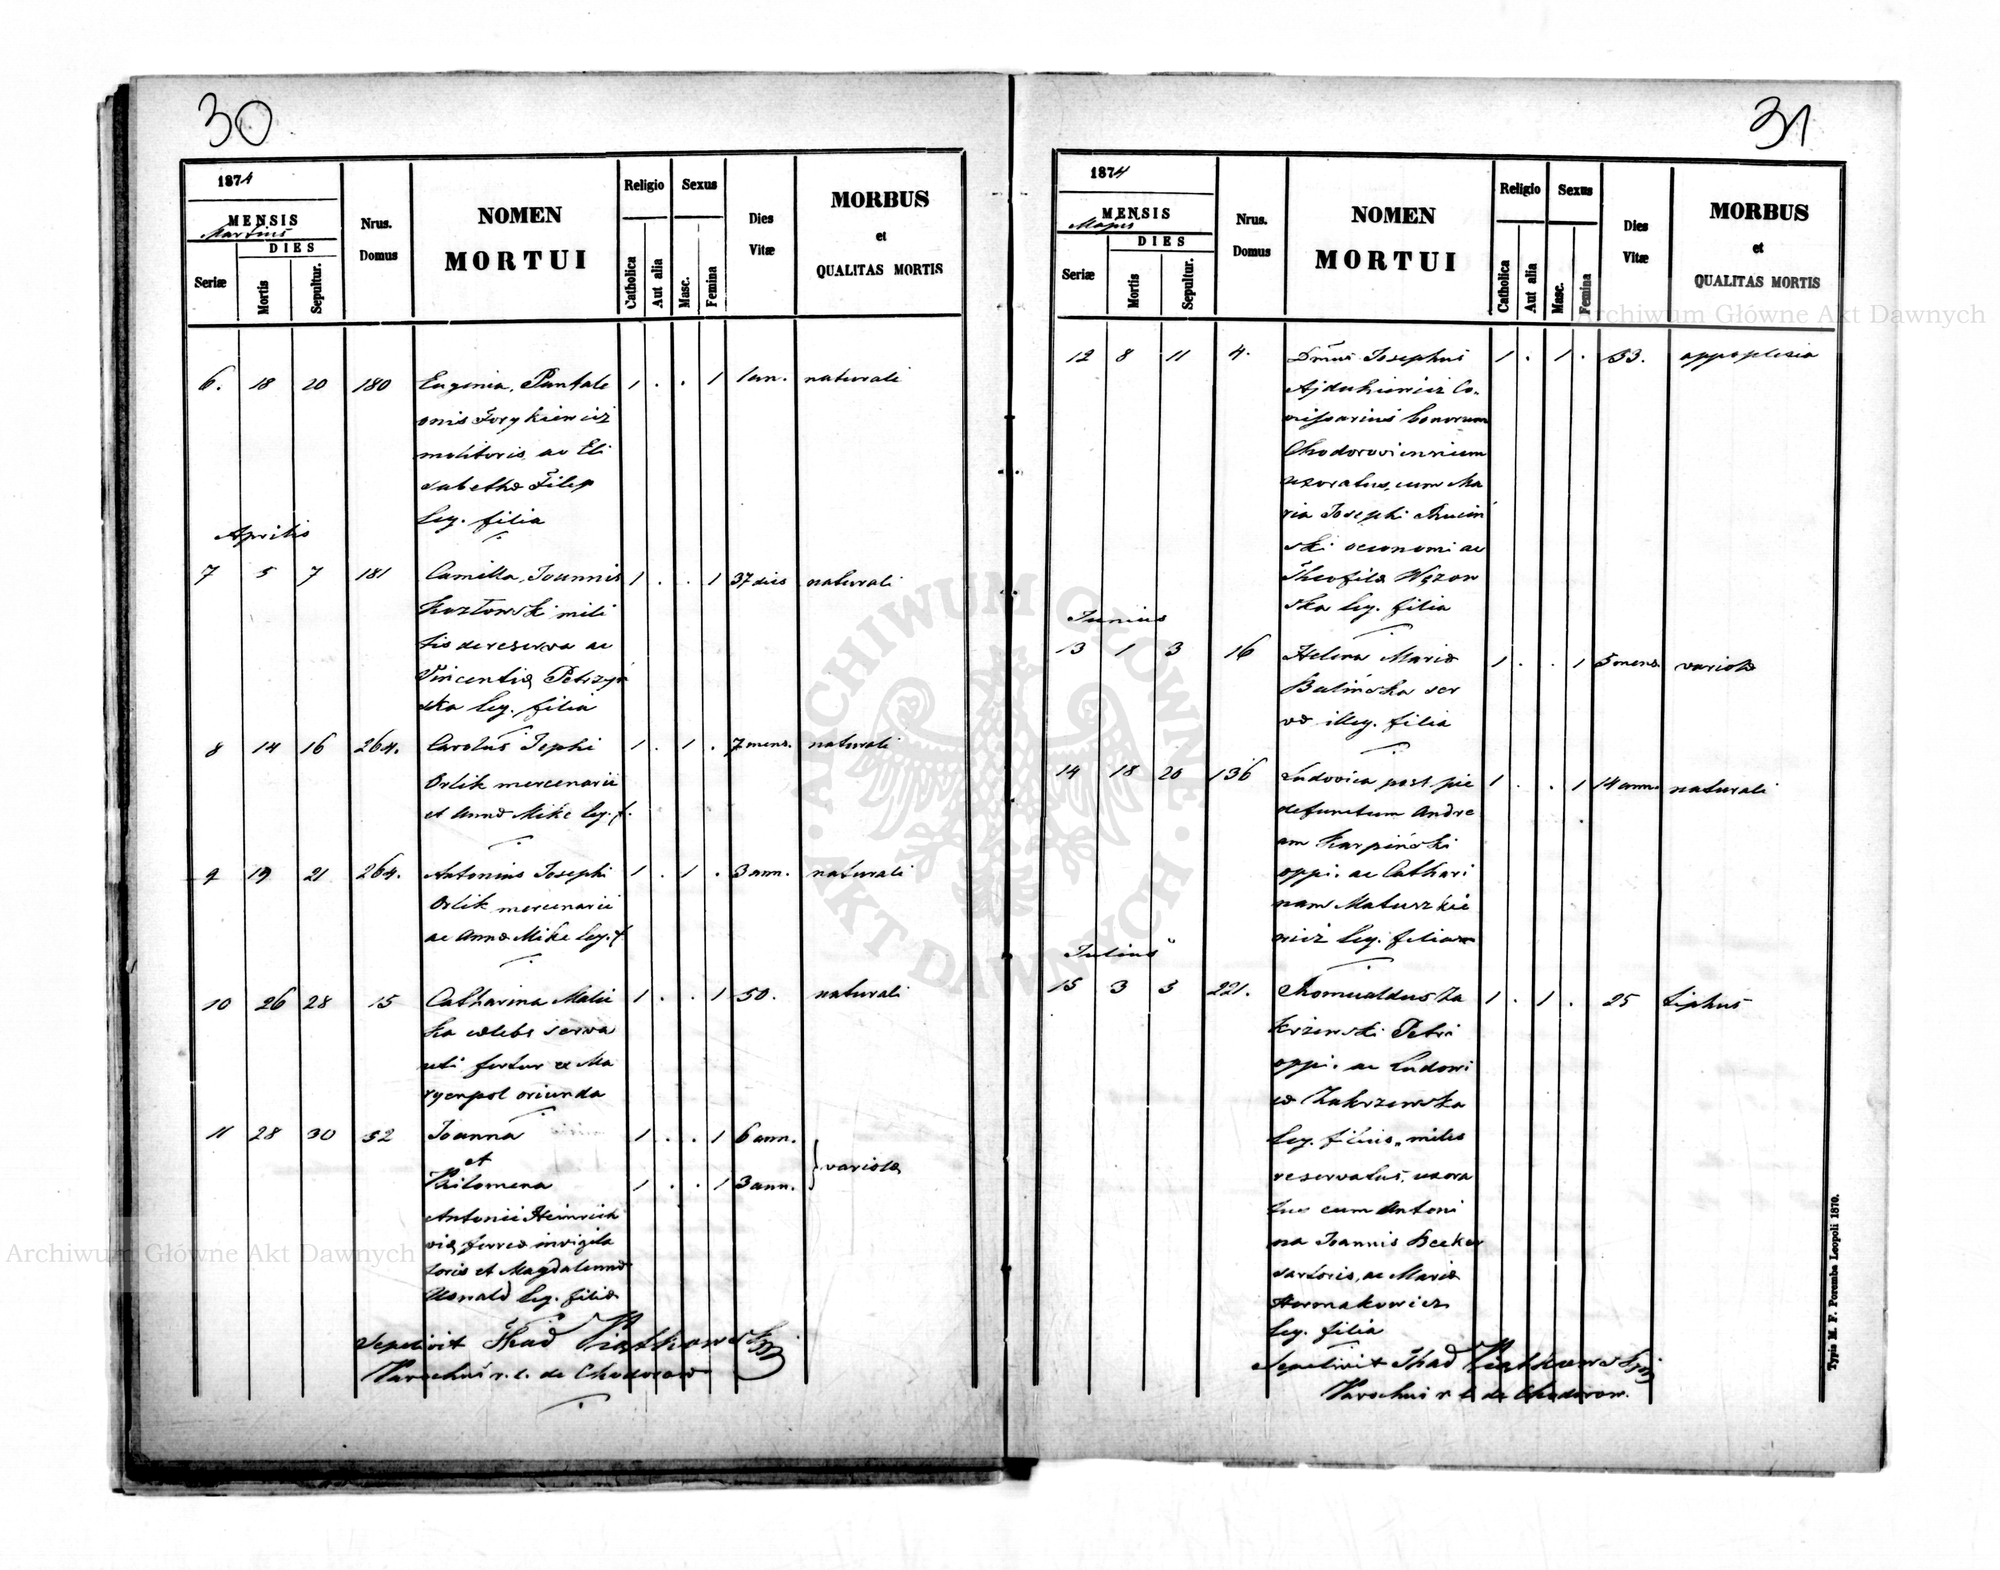 30
1874
MENSIS
Martius
DIES
Seriæ
Mortis
Sepultur.
Nrus.
Domus
NOMEN
MORTUI
Religio
Catholica
Aut alia
Sexus
Masc.
Femina
Dies
Vitæ
MORBUS
et
QUALITAS MORTIS
6. 18 20 180 Eugenia, Pantale 1 . . 1 1 an. naturali
onis
molitoris ac Eli
sabethæ Filip
leg. filia
Aprilis
7 5 7 181 Camilla, Joannis 1 . . 1 37 dies naturali
Kozłowski mili
tis de reserva ac
Vincentiæ
ska leg. filia
8 14 16 264. Carolus Jophi 1 . 1 . 7 mens. naturali
Orlik mercenarii
et Annæ Mike leg. f.
9 19 21 264. Antonius Josephi 1 . 1 . 3 ann. naturali
Orlik mercenarii
ac Annæ Mike leg. f.
10 26 28 15 Catharina 1 . . 1 50. naturali
ka cælebs serva
uti fertur ex Ma
ryenpol oriunda
11 28 30 52 Joanna 1 . . 1 6 ann.
et
variolæ
Philomena 1 . . 1 3 ann.
Antonii Heinrich
viæ ferreæ invigila
toris et Magdalenæ
leg. filiæ
Sepelivit Thad Piątkowski
Parochus r. l. de Chodorow
31
1874
MENSIS
Majus
DIES
Seriæ
Mortis
Sepultur.
Nrus.
Domus
NOMEN
MORTUI
Religio
Catholica
Aut alia
Sexus
Masc.
Femina
Dies
Vitæ
MORBUS
et
QUALITAS MORTIS
12 8 11 4. Dnus Josephus 1 . 1 . 53. appoplexia
Ajdukiewicz Co-
missarius bonorum
Chodoroviensium
uxoratus, cum Ma
ria Josephi
ski oeconomi ac
Theofilæ Wązow
ska leg. filia
Junius
13 1 3 16 Helena Mariæ 1 . . 1 5 mens variolæ
Bulińska ser
væ illeg. filia
14 18 20 136 Ludovica post pie 1 . . 1 14 ann. naturali
defunctum Andre
am Karpiński
oppi. ac Cathari
nam Matuszkie
wicz leg. filia
Julius
15 3 5 221. Romualdus Za 1 . 1 . 25 tiphus
krzewski Petri
oppi. ac Ludowi
cæ Zakrzewska
leg. filius, miles
reservatus, uxora
tus cum Antoni
na Joannis Becker
sartoris, ac Mariæ
Horonakowicz
leg. filia
Sepelivit Thad Piątkowski
Parochus r. l. de Chodorow.
Typis M. F. Poremba Leopoli 1870.
Archiwum Główne Akt Dawnych
Archiwum Główne Akt Dawnych
ARCHIWUM GŁÓWNE · AKT DAWNYCH ·